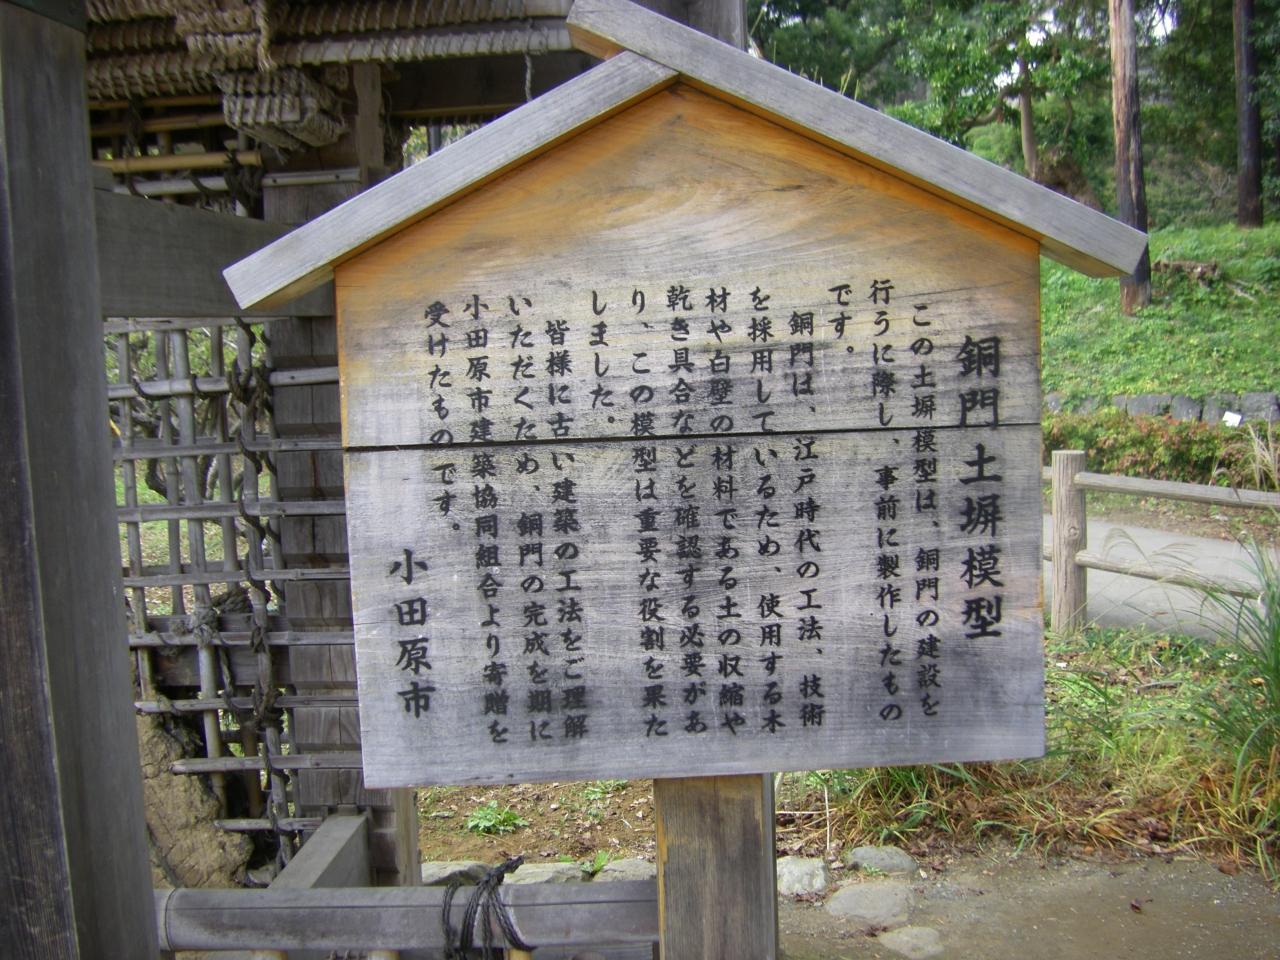 銅門土塀模型
この土塀模型は、銅門の建設を
行うに際し、事前に製作したもの
です。
銅門は、江戸時代の工法、技術
を採用しているため、使用する木
材や白壁の材料である土の収縮や
乾き具合などを確認する必要があ
り、この模型は重要な役割を果た
しました。
皆様に古い建築の工法をご理解
いただくため、銅門の完成を期に
小田原市建築協同組合より寄贈を
受けたものです。
小田原市